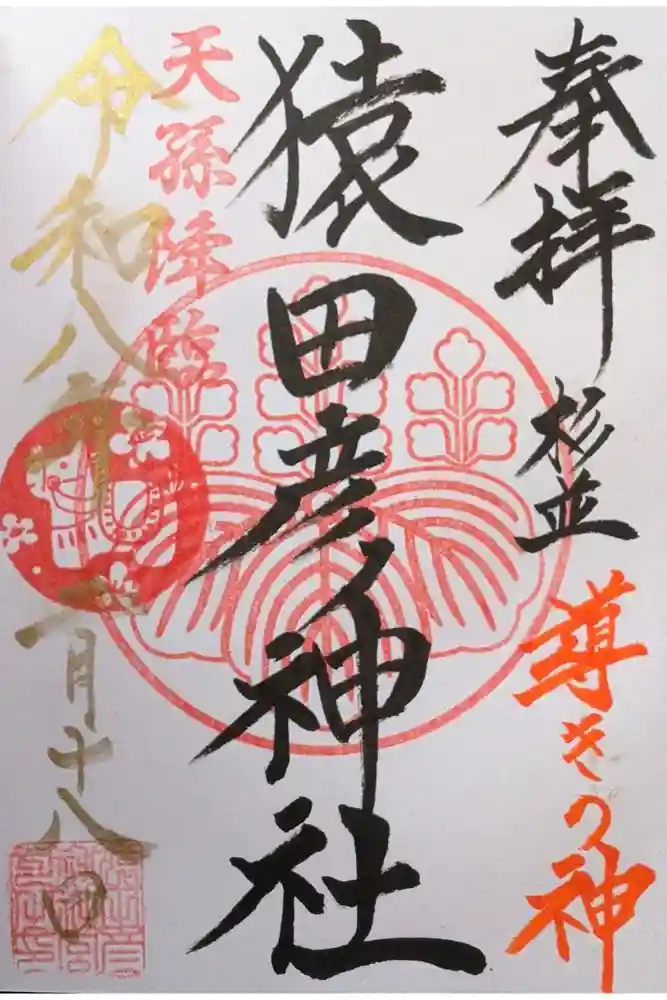 奉拝
杉並
導きの神
猿田彦神社
天孫降臨
令和八年一月十八日